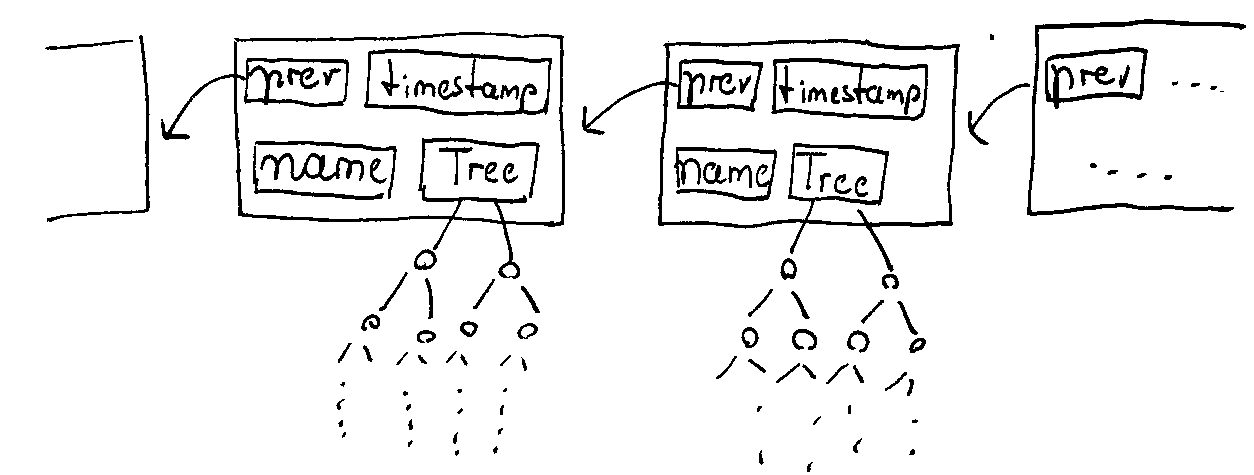 prev timestamp
name Tree
prev timestamp
name Tree
prev ....
....